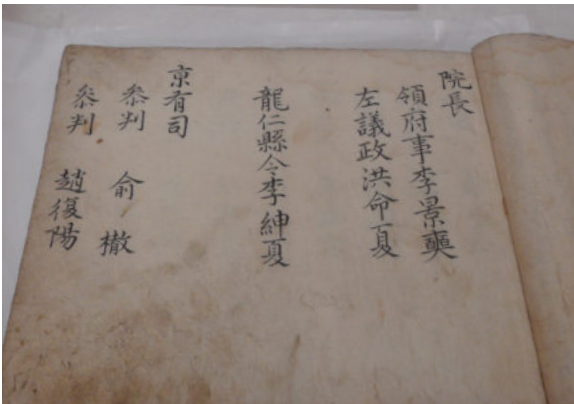 院長
領府事李景奭
左議政洪命夏
龍仁縣令李紳夏
京有司
叅判 俞㯙
叅判 趙復陽